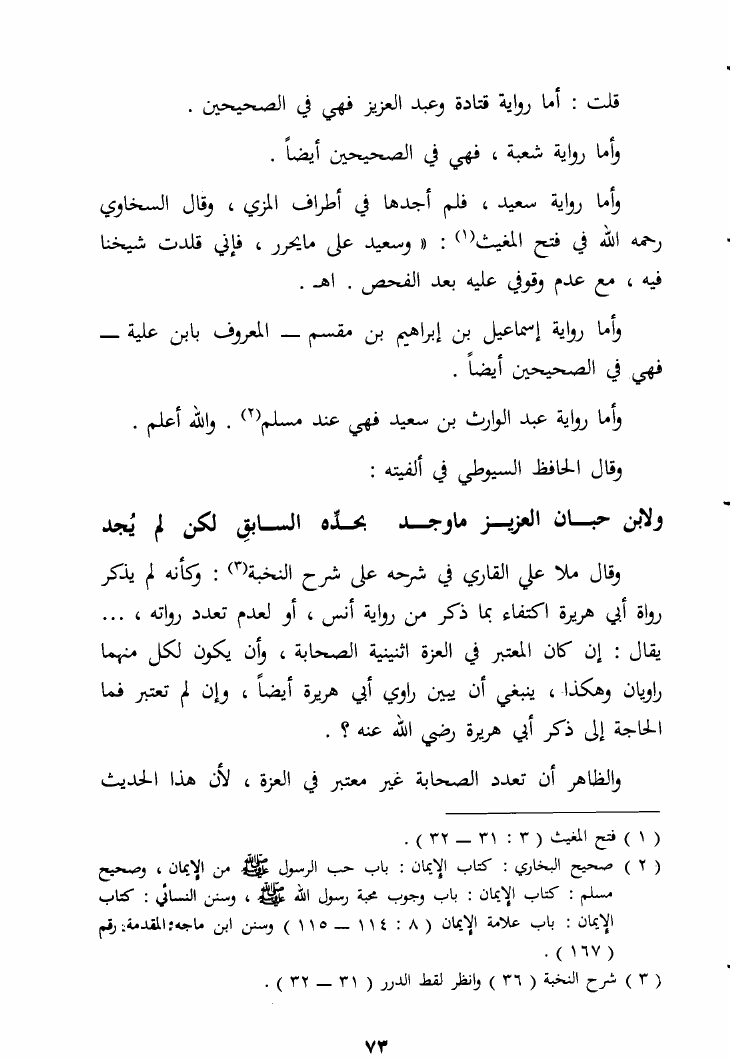 قلت : أما رواية قتادة وعبد العزيز فهي في الصحيحين .
وأما رواية شعبة ، فهي في الصحيحين أيضاً .
وأما رواية سعيد ، فلم أجدها في أطراف المزي ، وقال السخاوي
رحمه الله في فتح المغيث(١) : « وسعيد على مايحرر ، فإني قلدت شيخنا
فيه ، مع عدم وقوفي عليه بعد الفحص . اهـ .
وأما رواية إسماعيل بن إبراهيم بن مقسم ــ المعروف بابن علية ــ
فهي في الصحيحين أيضاً .
وأما رواية عبد الوارث بن سعيد فهي عند مسلم(٢) . والله أعلم .
وقال الحافظ السيوطي في ألفيته :
ولابن حبــان العزيــز ماوجــد بحــدّه الســابقِ لكن لم يُجد
وقال ملا علي القاري في شرحه على شرح النخبة(٣) : وكأنه لم يذكر
رواة أبي هريرة اكتفاء بما ذكر من رواية أنس ، أو لعدم تعدد رواته ، ...
يقال : إن كان المعتبر في العزة اثنينية الصحابة ، وأن يكون لكل منهما
راويان وهكذا ، ينبغي أن يبين راوي أبي هريرة أيضاً ، وإن لم تعتبر فما
الحاجة إلى ذكر أبي هريرة رضي الله عنه ؟ .
والظاهر أن تعدد الصحابة غير معتبر في العزة ، لأن هذا الحديث
( ١ ) فتح المغيث ( ٣ : ٣١ ــ ٣٢ ) .
( ٢ ) صحيح البخاري : كتاب الإيمان : باب حب الرسول ﷺ من الإيمان ، وصحيح
مسلم : كتاب الإيمان : باب وجوب محبة رسول الله ﷺ ، وسنن النسائي : كتاب
الإيمان : باب علامة الإيمان ( ٨ : ١١٤ ــ ١١٥ ) وسنن ابن ماجه : المقدمة : رقم
( ١٦٧ ) .
( ٣ ) شرح النخبة ( ٣٦ ) وانظر لقط الدرر ( ٣١ ــ ٣٢ ) .
٧٣